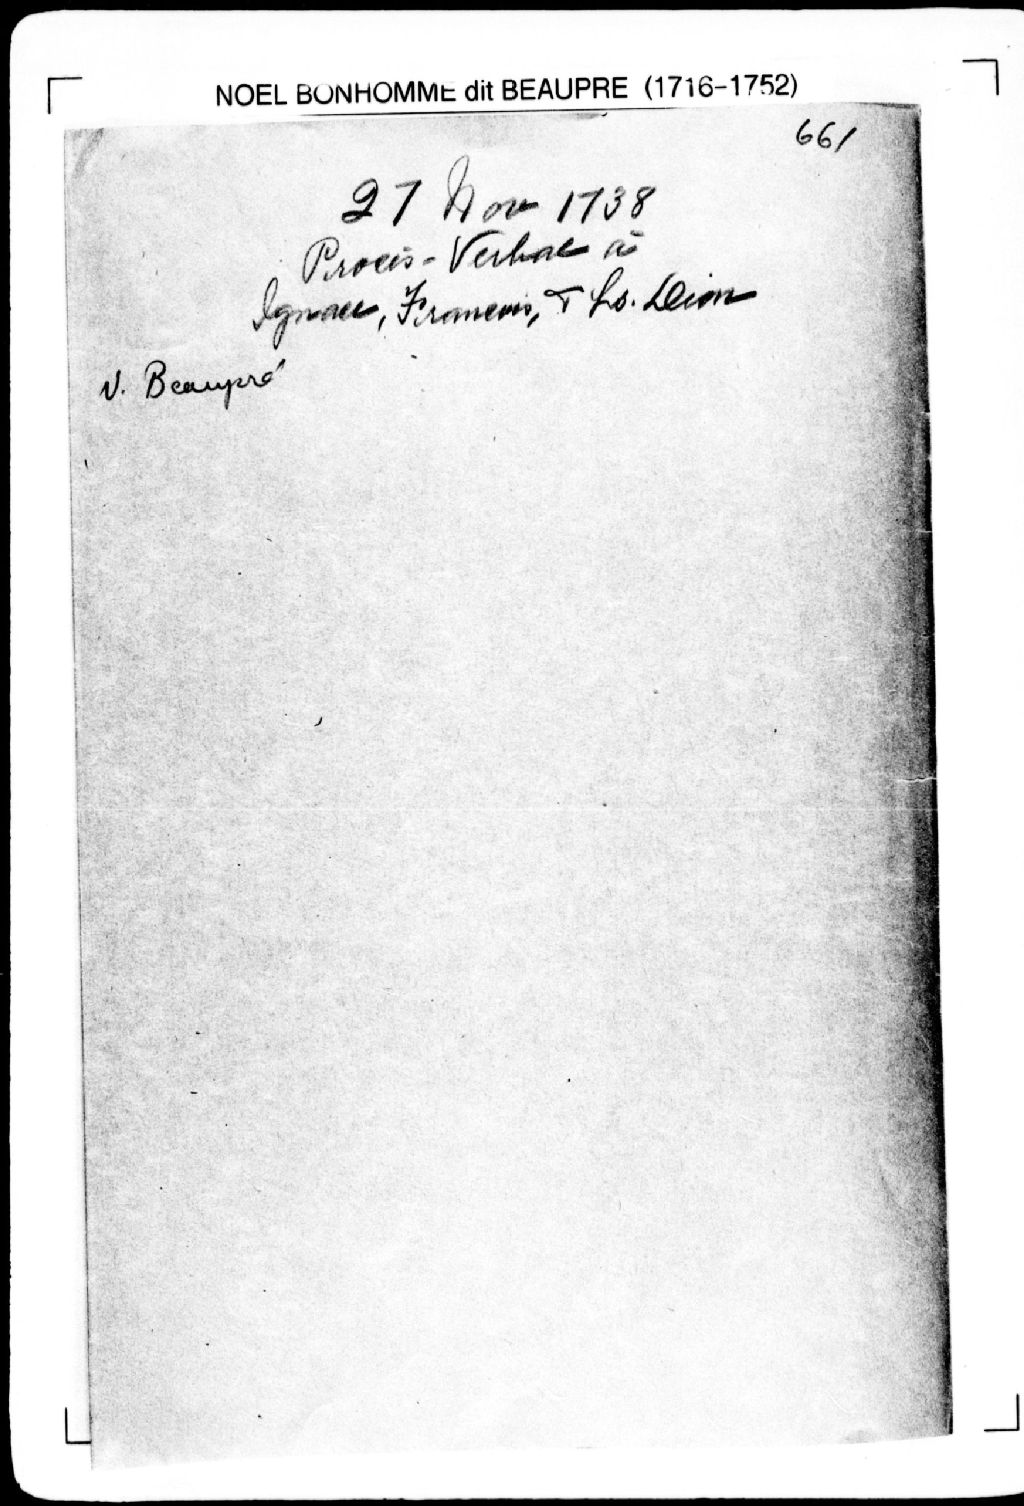 NOEL BONHOMME dit BEAUPRE (1716-1752)
661
27 Nov 1738
Procès-Verbal à
Ignace, Francois, & Ls. Dion
N. Beaupré